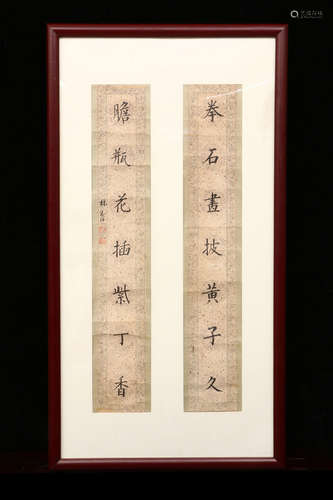 拳石畫披黃子久
膽瓶花插紫丁香